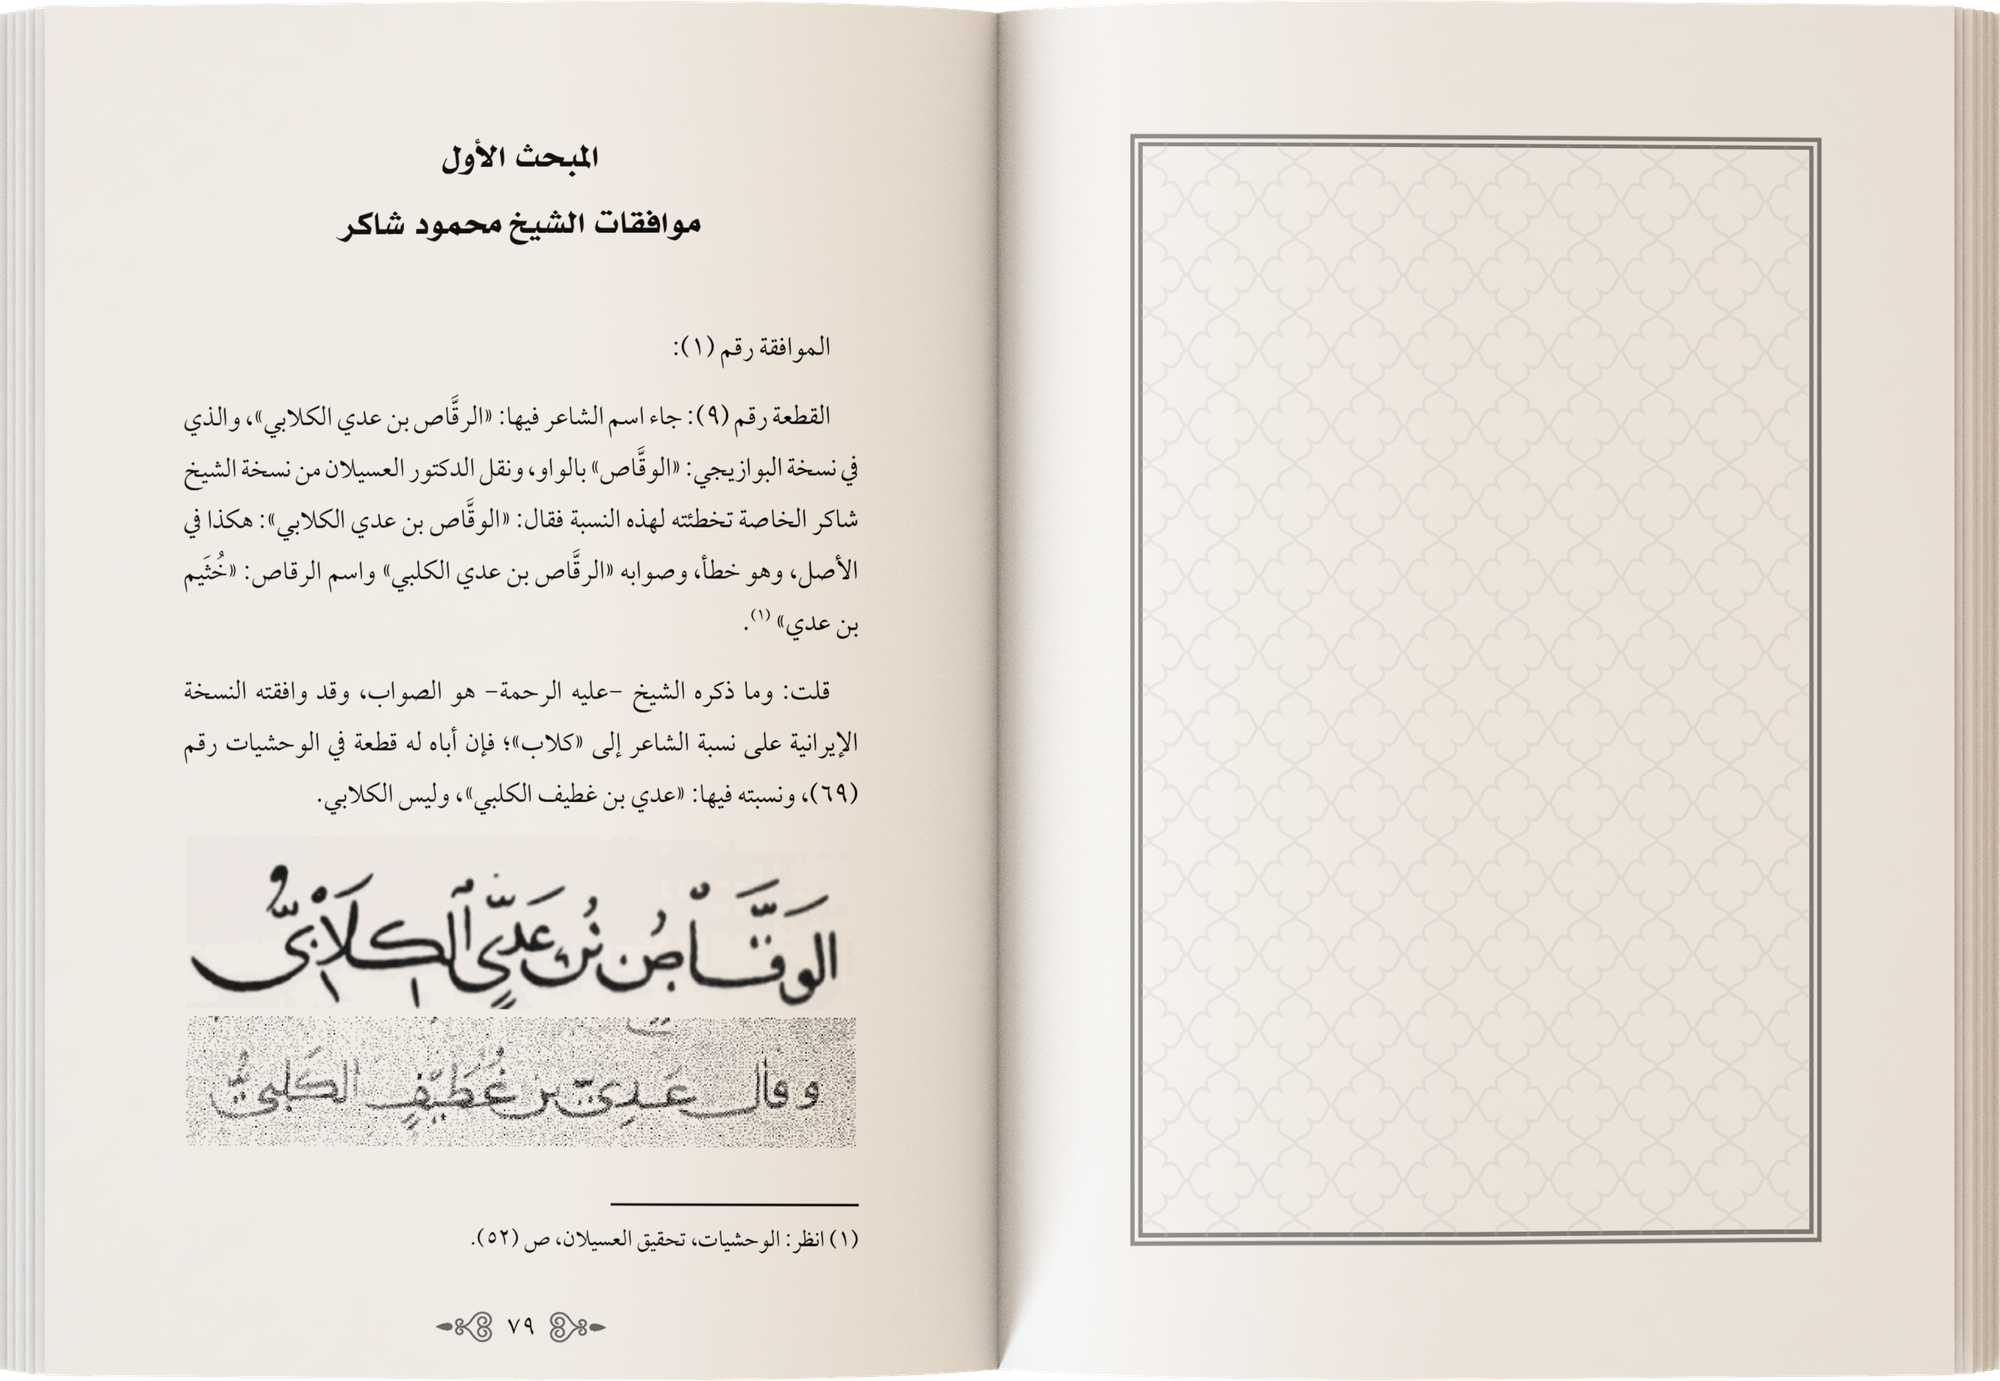 المبحث الأول
موافقات الشيخ محمود شاكر
الموافقة رقم (١):
القطعة رقم (٩): جاء اسم الشاعر فيها: «الرقَّاص بن عدي الكلابي»، والذي
في نسخة البوازيجي: «الوقَّاص» بالواو، ونقل الدكتور العسيلان من نسخة الشيخ
شاكر الخاصة تخطئته لهذه النسبة فقال: «الوقَّاص بن عدي الكلابي»: هكذا في
الأصل، وهو خطأ، وصوابه «الرقَّاص بن عدي الكلبي» واسم الرقاص: «خُثَيم
بن عدي» (١).
قلت: وما ذكره الشيخ –عليه الرحمة– هو الصواب، وقد وافقته النسخة
الإيرانية على نسبة الشاعر إلى «كلاب»؛ فإن أباه له قطعة في الوحشيات رقم
(٦٩)، ونسبته فيها: «عدي بن غطيف الكلبي»، وليس الكلابي.
الوَقَّاصُ بْنُ عَدِيٍّ الكِلَابِيُّ
وقال عَدِيّ بن غُطَيْفٍ الكَلبيُّ
(١) انظر: الوحشيات، تحقيق العسيلان، ص (٥٢).
٧٩